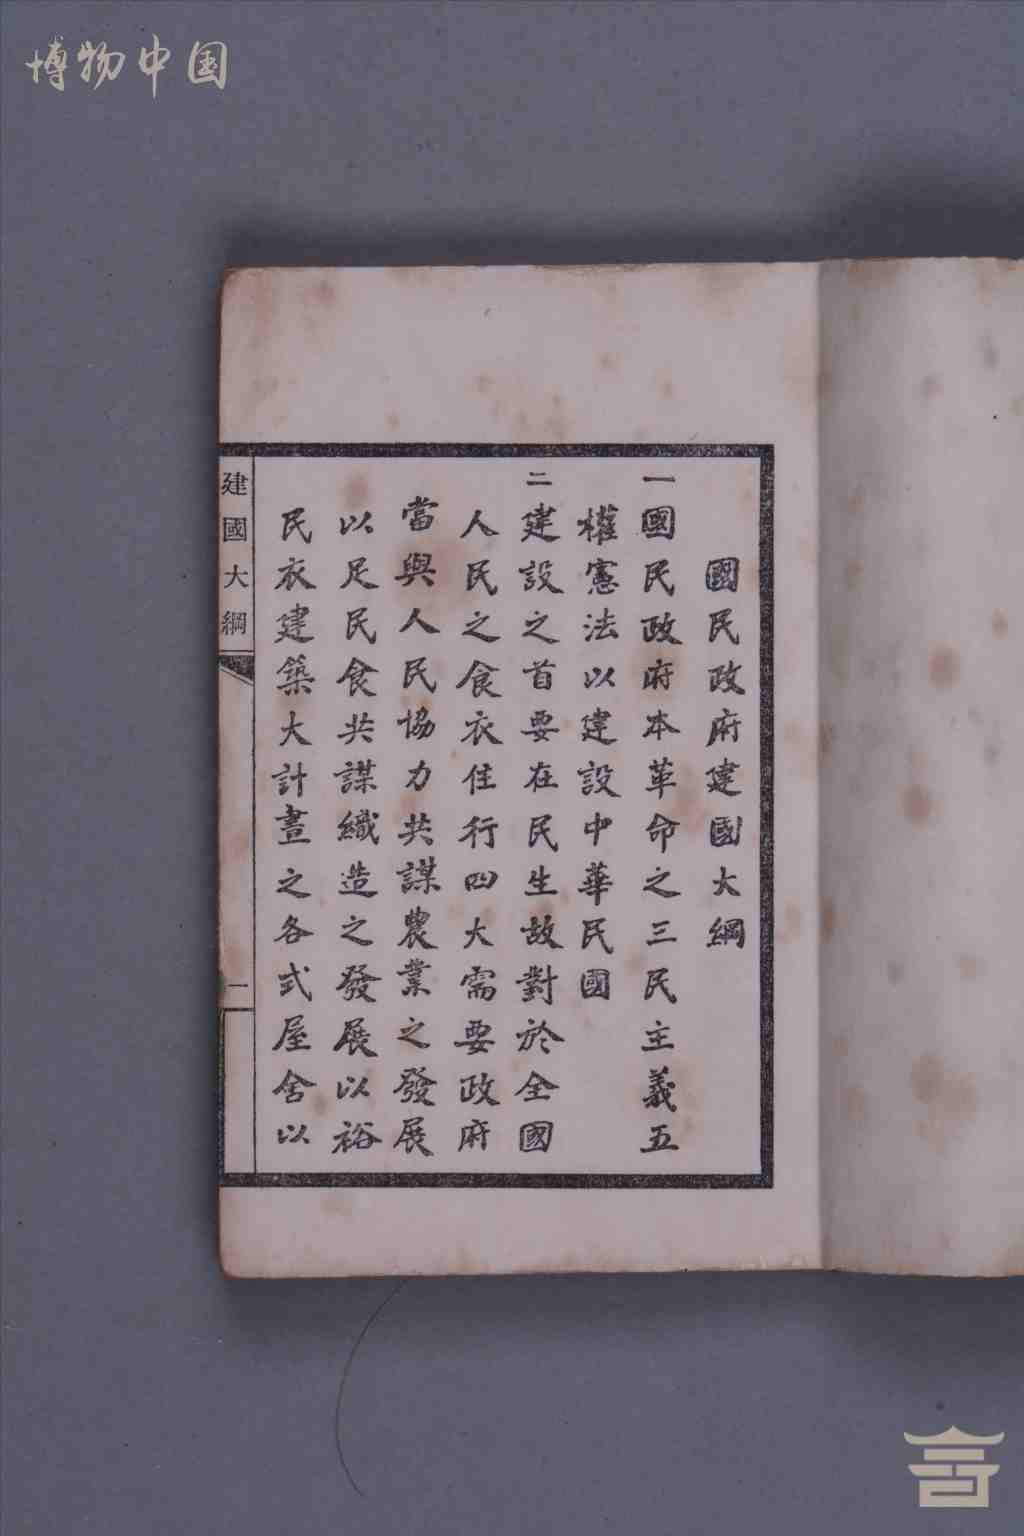 博物中国
國民政府建國大綱
一國民政府本革命之三民主義五
權憲法以建設中華民國
二建設之首要在民生故對於全國
人民之食衣住行四大需要政府
當與人民協力共謀農業之發展
以足民食共謀織造之發展以裕
民衣建築大計畫之各式屋舍以
建國大綱
一